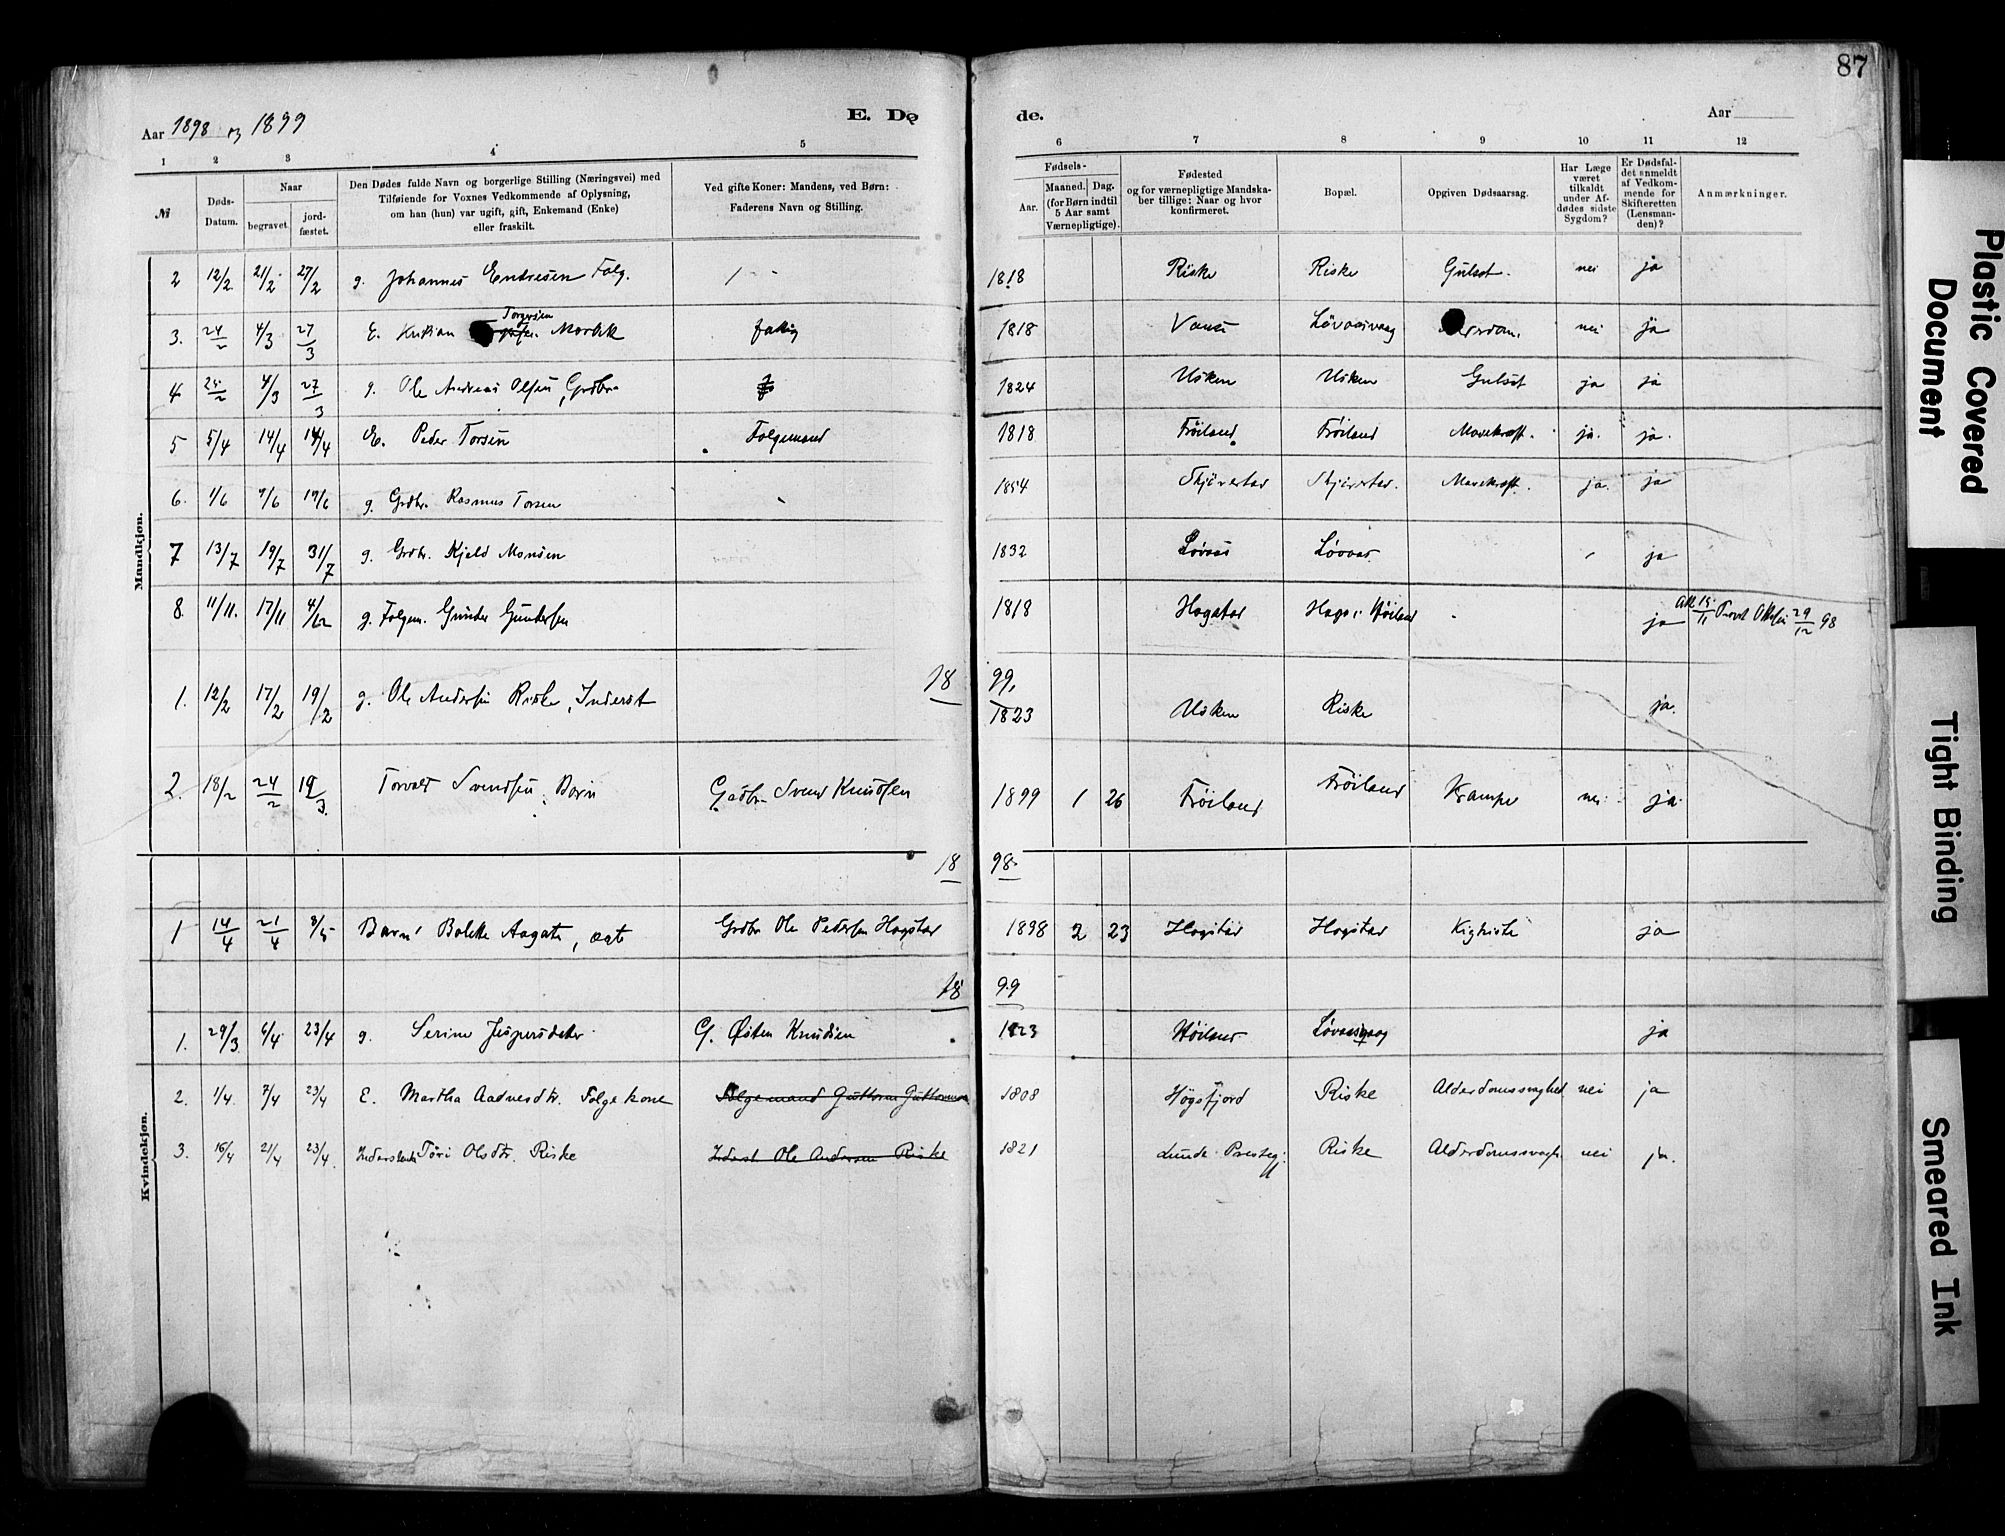 87
Aar 1898 og 1899
E. Dø
de.
Aar
1 2 3 4 5 6 7 8 9 10 11 12
№
Døds-Datum.
Naar
begravet.
jord-fæstet.
Den Dødes fulde Navn og borgerlige Stilling (Næringsvei) med
Tilføiende for Voxnes Vedkommende af Oplysning,
om han (hun) var ugift, gift, Enkemand (Enke)
eller fraskilt.
Ved gifte Koner: Mandens, ved Børn:
Faderens Navn og Stilling.
Fødsels-
Aar.
Maaned. Dag.
(for Børn indtil
5 Aar samt
Værnepligtige).
Fødested
og for værnepligtige Mandska-
ber tillige: Naar og hvor
konfirmeret.
Bopæl.
Opgiven Dødsaarsag.
Har Læge
været
tilkaldt
under Af-
dødes sidste
Sygdom?
Er Dødsfal-
det anmeldt
af Vedkom-
mende for
Skifteretten
(Lensman-
den)?
Anmærkninger.
Mandkjøn.
2 12/2 21/2 27/2 g. Johannes Endresen Folg. 1818 Riske Riske Gulsot. nei ja
3. 24/2 4/3 27/3 E. Kristian Torgersen fattig 1818 Vanse nei ja
4 25/2 4/3 27/3 g. Ole Andreas Olsen, Grdbr. 1824 Usken Usken Gulsot ja ja
5 5/4 14/4 14/4 E. Peder Torsen Folgemand 1818 Fröiland Fröiland Mavekræft. ja. ja.
6. 1/6 7/6 17/6 g. Grdbr. Rasmus Torsen 1854 Skjörestad Skjörestad. Mavekræft. ja. ja
7 13/7 19/7 31/7 g. Grdbr. Kjeld Monsen 1832 Løvaas Løvaas ja
8. 11/11. 17/11 4/12 g. Folgem. Gunder Gundersen 1818 Hogstad ja 29/12 98
18 99.
1. 12/2 17/2 19/2 g. Ole Andersen Riske, Inderst 1823 Usken Riske ja.
2. 18/2 24/2 19/3. Torvald Svendsen. Barn Gadbr. Svend Knudsen 1899 1 26 Fröiland Fröiland Krampe nei ja
18 98.
Kvindekjøn.
1 14/4 21/4 8/5 Barn Bolette Aagate, ægte Grdbr Ole Pedersen Hogstad 1898 2 23 Hogstad Hogstad Kighoste ja
18 99
1. 29/3 6/4 23/4 g. Serine Jespersdatter G. Østen Knudsen 1823 Høiland Løvaasvaag ja
2. 1/4. 7/4 23/4 E. Martha Aadnesdtr. Folgekone Folgemand Guttorm Guttormsen 1808 Högsfjord Riske Alderdomssvaghed nei ja
3. 15/4 21/4 23/4. Töri Olsdtr. Riske Inderst Ole Andersen Riske 1821 Lunde Presteg. Riske Alderdomssvagh. nei ja.
Plastic Covered
Document
Tight Binding
Smeared Ink